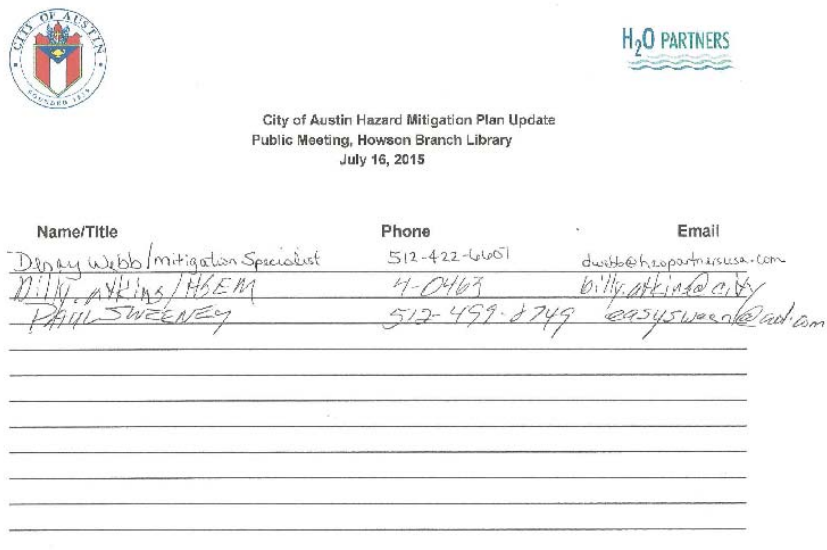 CITY OF AUSTIN
FOUNDED 1839
H2O PARTNERS
City of Austin Hazard Mitigation Plan Update
Public Meeting, Howson Branch Library
July 16, 2015
Name/Title Phone Email
Webb/Mitigation Specialist 512-422-6601 dwebb@h2opartnersusa.com
Billy Atkins/HSEM 4-0463 billy.atkins@city
PAUL SWEENEY 512-499-8749